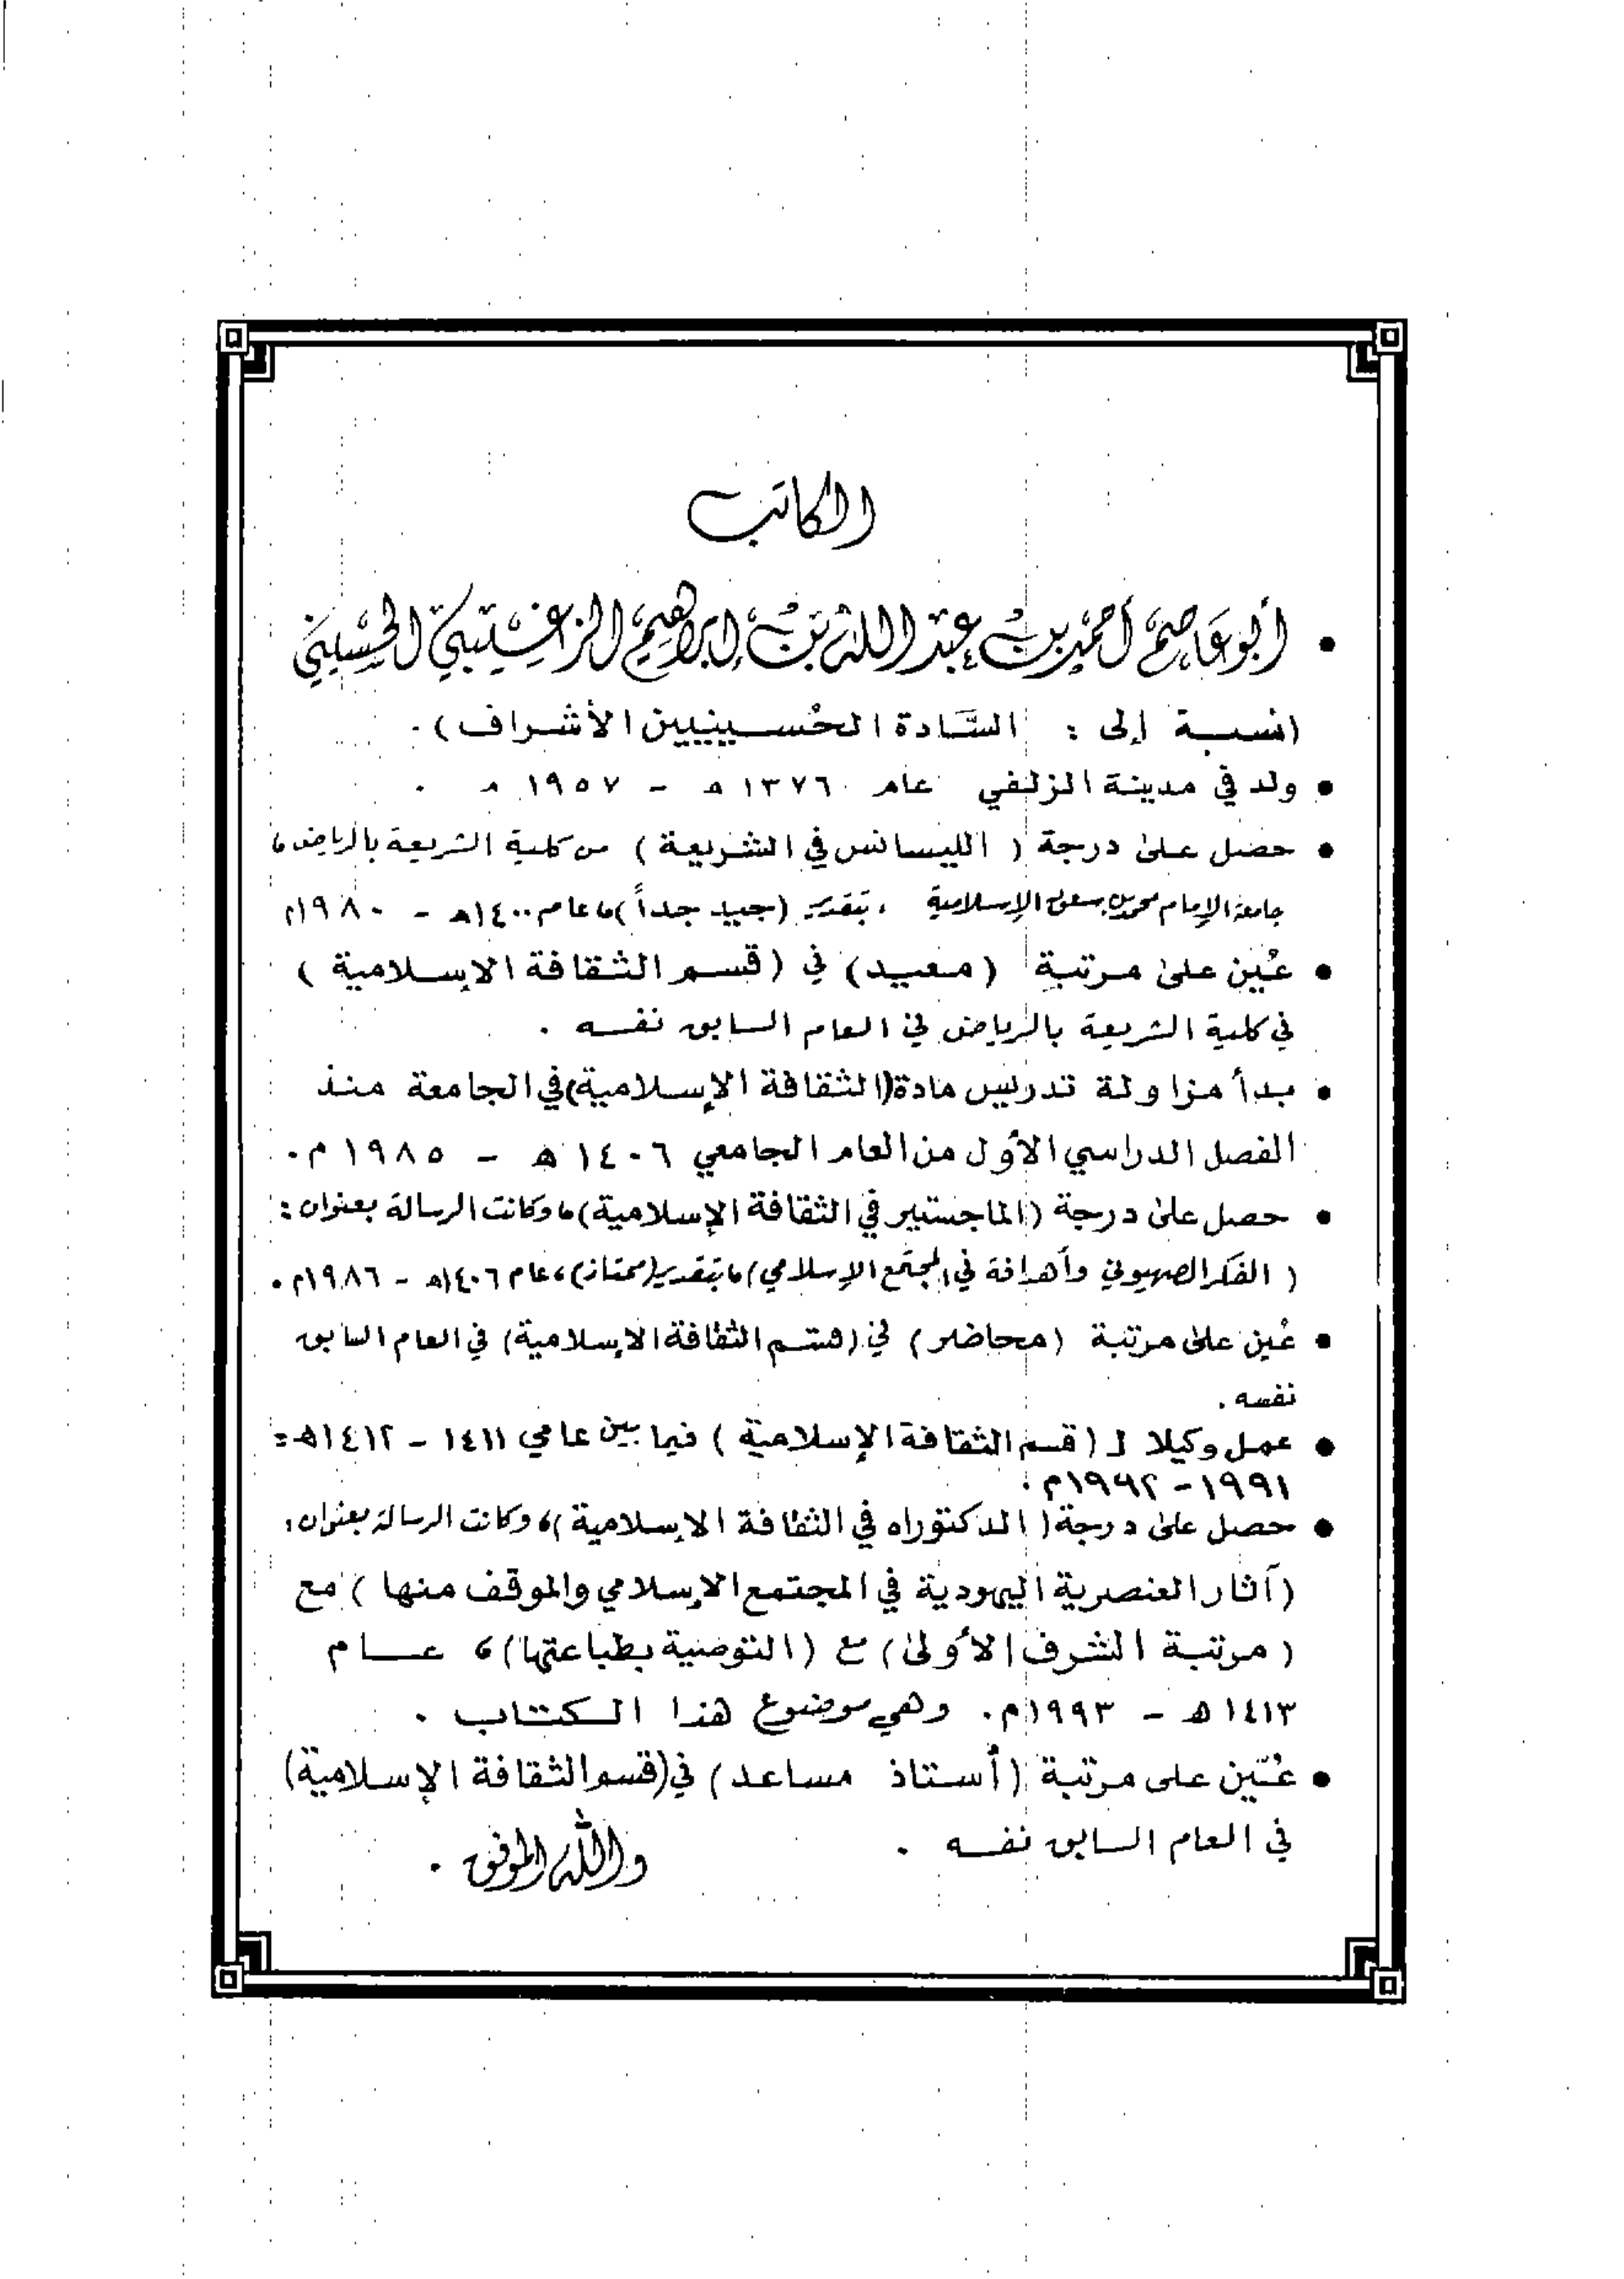 الكاتب
• أبو عاصم أحمد بن عبد الله بن إبراهيم الزغيبي الحسيني
(نسبة إلى : السَّادة الحُسينيين الأشراف) .
• ولد في مدينة الزلفي عام ١٣٧٦ هـ - ١٩٥٧ م .
• حصل على درجة ( الليسانس في الشريعة ) من كلية الشريعة بالرياض ،
جامعة الإمام محمد بن سعود الإسلامية ، بتقدير (جيد جداً) ، عام ١٤٠٠هـ - ١٩٨٠م
• عُيِن على مرتبة (معيد) في (قسم الثقافة الإسلامية )
في كلية الشريعة بالرياض في العام السابق نفسه .
• بدأ مزاولة تدريس مادة (الثقافة الإسلامية) في الجامعة منذ
الفصل الدراسي الأول من العام الجامعي ١٤٠٦ هـ - ١٩٨٥ م .
• حصل على درجة (الماجستير في الثقافة الإسلامية) ، وكانت الرسالة بعنوان :
( الفكر الصهيوني وأهدافة في المجتمع الإسلامي) ، بتقدير (ممتاز) ، عام ١٤٠٦هـ - ١٩٨٦م .
• عُين على مرتبة (محاضر) في (قسم الثقافة الإسلامية) في العام السابق
نفسه .
• عمل وكيلا لـ ( قسم الثقافة الإسلامية ) فيما بين عامي ١٤١١ - ١٤١٢هـ =
١٩٩١ - ١٩٩٢م .
• حصل على درجة ( الدكتوراه في الثقافة الإسلامية ) ، وكانت الرسالة بعنوان :
(آثار العنصرية اليهودية في المجتمع الإسلامي والموقف منها ) مع
( مرتبة الشرف الأولى) مع (التوصية بطباعتها) ، عــام
١٤١٣ هـ - ١٩٩٣م . وهي موضوع هذا الكتاب .
• عُيّن على مرتبة (أستاذ مساعد) في (قسم الثقافة الإسلامية)
في العام السابق نفسه .
والله الموفق .